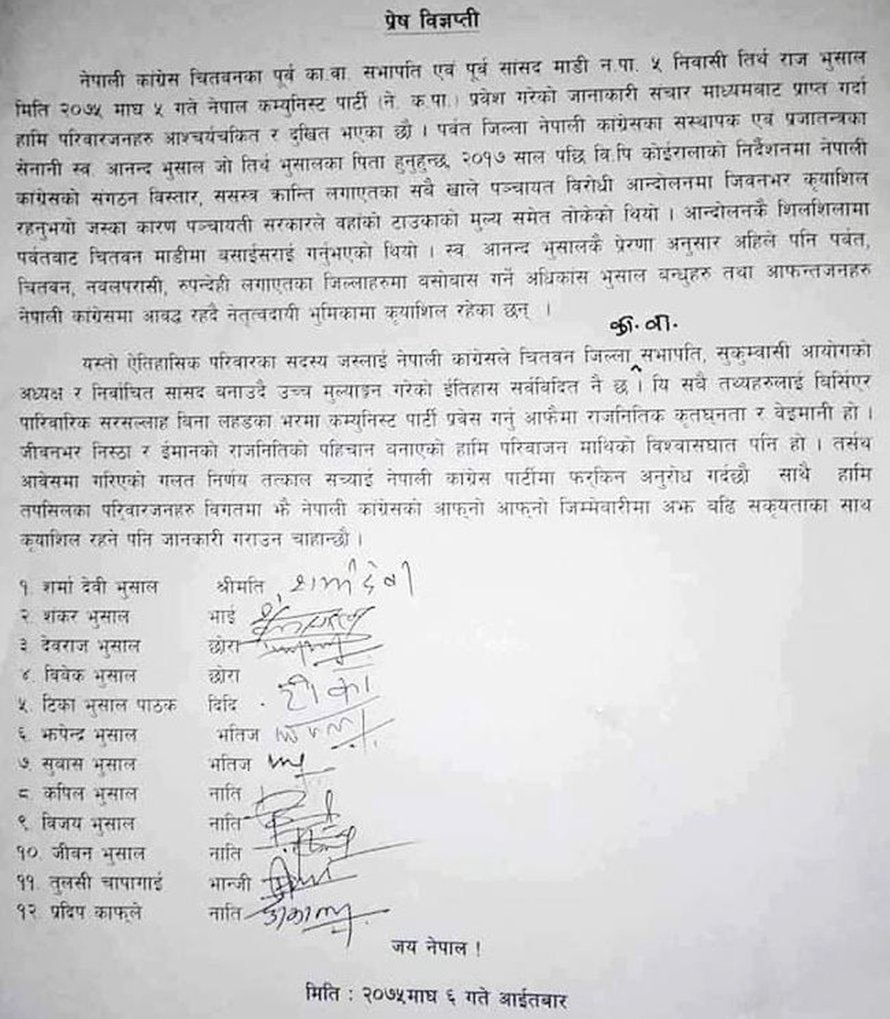 प्रेष विज्ञप्ती
नेपाली कांग्रेस चितवनका पूर्व का.वा. सभापति एवं पूर्व सांसद माडी न.पा. ५ निवासी तिर्थ राज भुसाल
मिति २०७५ माघ ५ गते नेपाल कम्युनिस्ट पार्टी (ने. क.पा.) प्रवेश गरेको जानाकारी संचार माध्यमबाट प्राप्त गर्दा
हामि परिवारजनहरु आश्चर्यचकित र दुखित भएका छौ । पर्वत जिल्ला नेपाली कांग्रेसका सस्थापक एवं प्रजातन्त्रका
सेनानी स्व. आनन्द भुसाल जो तिर्थ भुसालका पिता हुनुहुन्छ, २०१७ साल पछि वि.पि कोईरालाको निर्देशनमा नेपाली
कांग्रेसको संगठन विस्तार, ससस्त्र क्रान्ति लगाएतका सबै खाले पञ्चायत विरोधी आन्दोलनमा जिवनभर कृयाशिल
रहनुभयो जस्का कारण पञ्चायती सरकारले वहांको टाउकाको मुल्य समेत तोकेको थियो । आन्दोलनकै शिलशिलामा
पर्वतबाट चितवन माडीमा बसाईसराई गर्नुभएको थियो । स्व. आनन्द भुसालकै प्रेरणा अनुसार अहिले पनि पर्वत,
चितवन, नवलपरासी, रुपन्देही लगाएतका जिल्लाहरुमा बसोबास गर्ने अधिकांस भुसाल बन्धुहरु तथा आफन्तजनहरु
नेपाली कांग्रेसमा आवद्ध रहदै नेतृत्वदायी भुमिकामा कृयाशिल रहेका छन् ।
का.वा.
यस्तो ऐतिहासिक परिवारका सदस्य जस्लाई नेपाली कांग्रेसले चितवन जिल्ला सभापति, सुकुम्वासी आयोगको
अध्यक्ष र निर्वाचित सांसद बनाउदै उच्च मुल्याङ्कन गरेको ईतिहास सर्वविदित नै छ । यि सबै तथ्यहरुलाई बिर्सिएर
पारिवारिक सरसल्लाह बिना लहडका भरमा कम्युनिस्ट पार्टी प्रवेस गर्नु आफैमा राजनितिक कृतघ्नता र वेइमानी हो ।
जीवनभर निस्ठा र ईमानको राजनितिको पहिचान बनाएको हामि परिवाजन माथिको विश्वासघात पनि हो । तर्सथ
आवेसमा गरिएको गलत निर्णय तत्काल सच्याई नेपाली कांग्रेस पार्टीमा फर्‌किन अनुरोध गर्दछौ साथै हामि
तपसिलका परिवारजनहरु विगतमा झै नेपाली कांग्रेसको आफ्‌नो आफ्‌नो जिम्मेवारीमा अझ बढि सकृयताका साथ
कृयाशिल रहने पनि जानकारी गराउन चाहान्छौ ।
१. शर्मा देवी भुसाल श्रीमति शर्मा देवी
२. शंकर भुसाल भाई
३. देवराज भुसाल छोरा
४. बिबेक भुसाल छोरा
५. टिका भुसाल पाठक दिदि टीका
६. झपेन्द्र भुसाल भतिज
७. सुबास भुसाल भतिज
८. कपिल भुसाल नाति
९. विजय भुसाल नाति
१०. जीवन भुसाल नाति
११. तुलसी चापागाई भान्जी
१२. प्रदिप काफ्‌ले नाति
जय नेपाल !
मिति : २०७५माघ ६ गते आईतबार